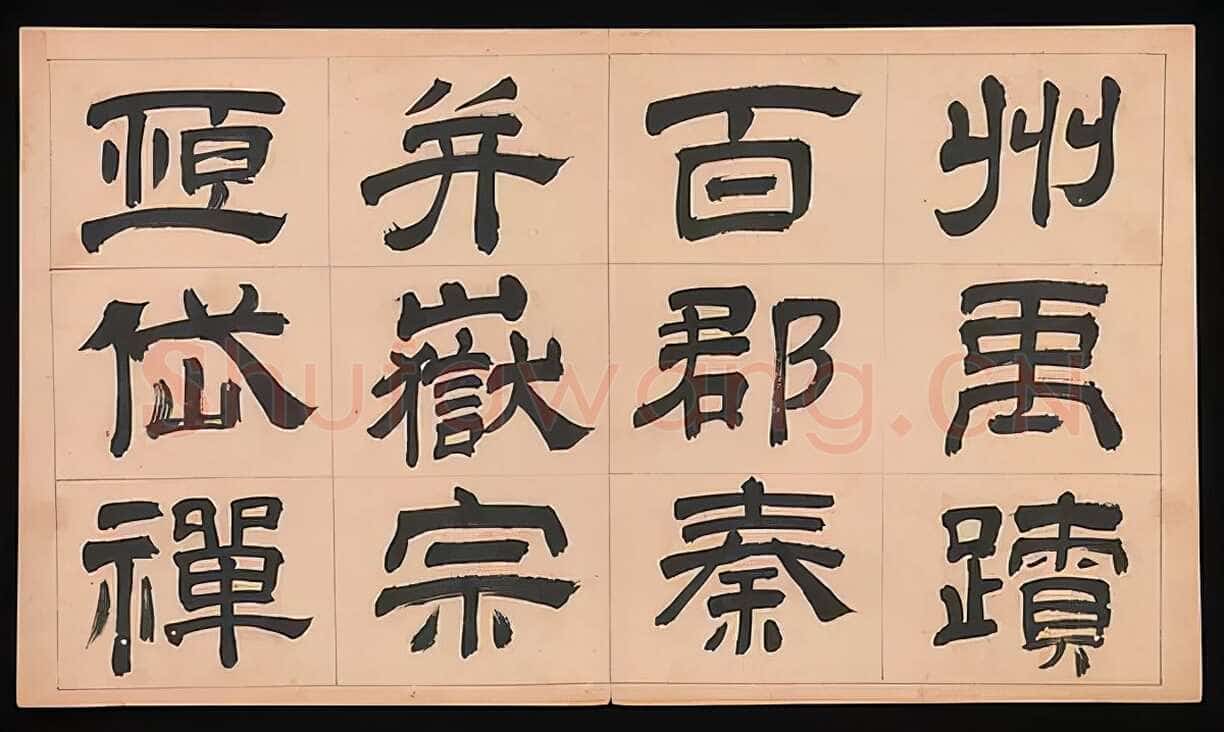 州禹蹟
百郡秦
并嶽宗
恆岱禪
Shufawang.CN